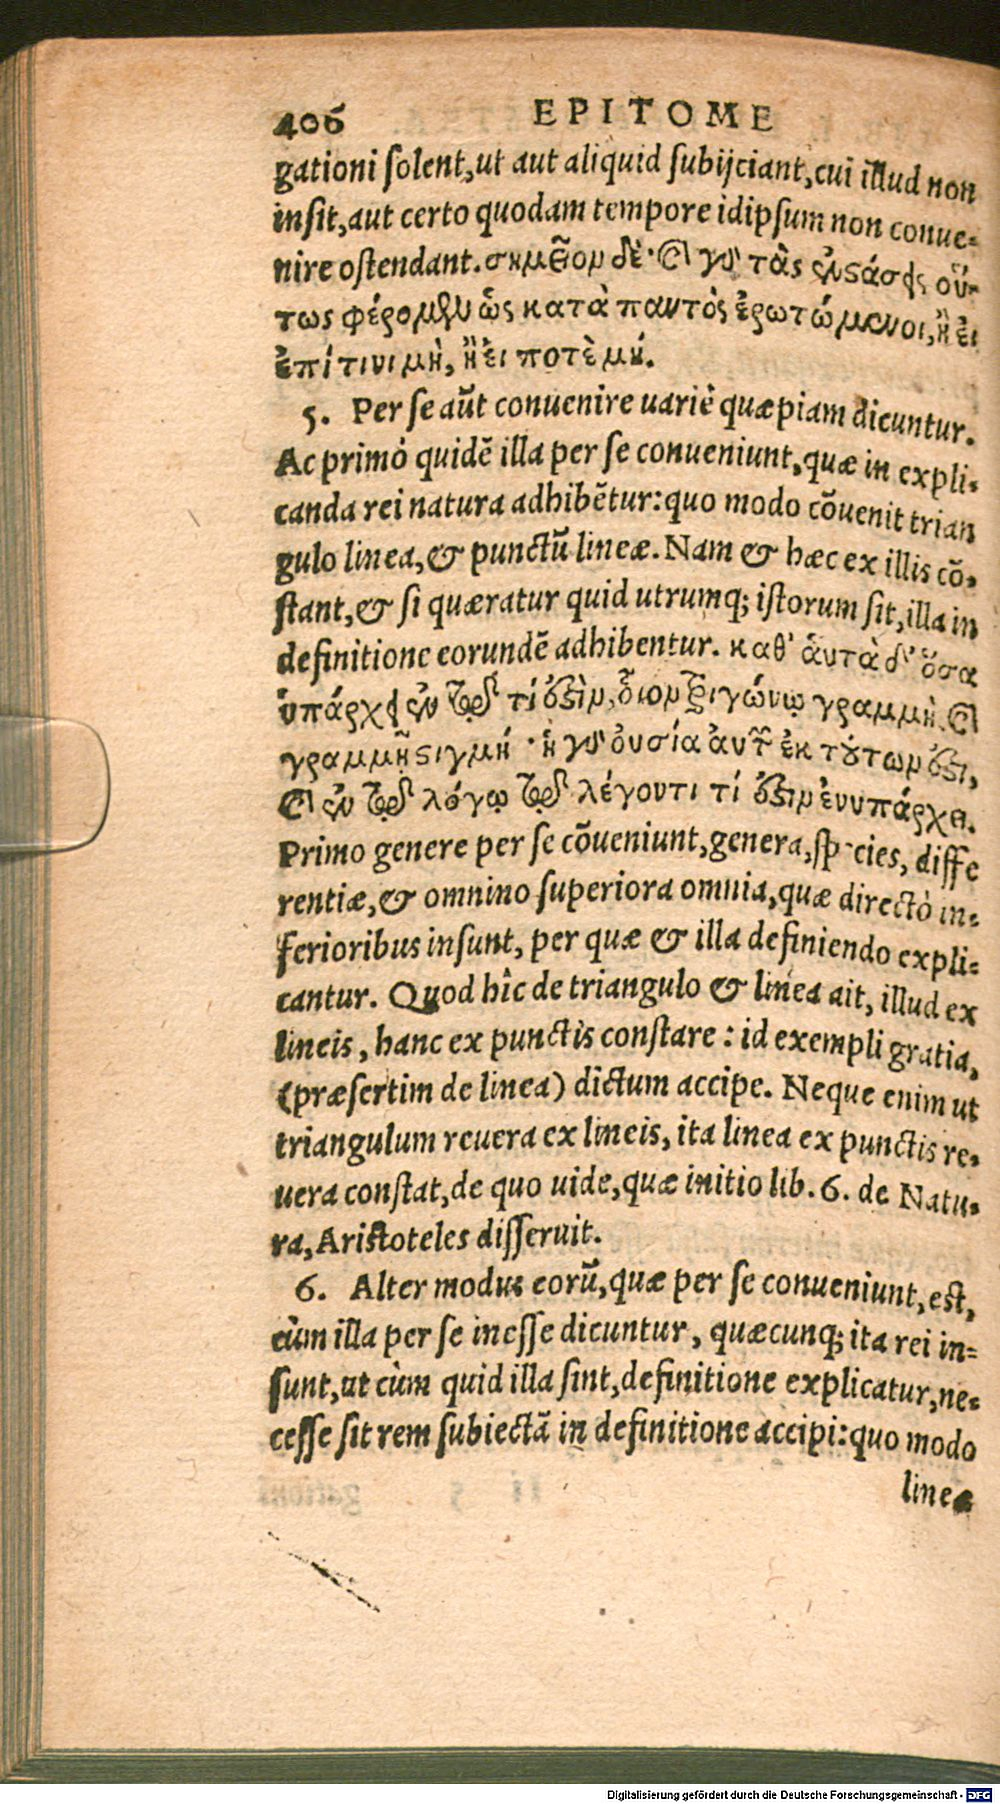 406 EPITOME
gationi solent, ut aut aliquid subijciant, cui illud non
insit, aut certo quodam tempore idipsum non conue-
nire ostendant. σημεῖομ δὲ· καὶ γὰρ τὰς ἐνστάσεις οὕ-
τως φέρομεν ὡς κατὰ παντὸς ἐρωτώμενοι, ἢ εἰ
ἐπί τινι μὴ, ἢ εἰ ποτὲ μή.
5. Per se aūt conuenire uariè quæpiam dicuntur.
Ac primò quidē illa per se conueniunt, quæ in expli-
canda rei natura adhibētur: quo modo cōuenit trian
gulo linea, & punctū lineæ. Nam & hæc ex illis cō-
stant, & si quæratur quid utrumq; istorum sit, illa in
definitione eorundē adhibentur. καθ' ἁυτὰ δ' ὅσα
ὑπάρχει ἐν τῷ τί ἐστὶμ, οἷομ τριγώνῳ γραμμὴ, καὶ
γραμμῇ στιγμή· ἡ γὰρ οὐσία αὐτῶν ἐκ τούτωμ ἐστι,
καὶ ἐν τῷ λόγῳ τῷ λέγοντι τί ἐστιμ ἐνυπάρχει.
Primo genere per se cōueniunt, genera, species, diffe
rentiæ, & omnino superiora omnia, quæ directò in-
ferioribus insunt, per quæ & illa definiendo expli-
cantur. Quod hîc de triangulo & linea ait, illud ex
lineis, hanc ex punctis constare: id exempli gratia,
(præsertim de linea) dictum accipe. Neque enim ut
triangulum reuera ex lineis, ita linea ex punctis re-
uera constat, de quo uide, quæ initio lib. 6. de Natu-
ra, Aristoteles disseruit.
6. Alter modus eorū, quæ per se conueniunt, est,
cùm illa per se inesse dicuntur, quæcunq; ita rei in-
sunt, ut cùm quid illa sint, definitione explicatur, ne-
cesse sit rem subiectā in definitione accipi: quo modo
linea
Digitalisierung gefördert durch die Deutsche Forschungsgemeinschaft - DFG